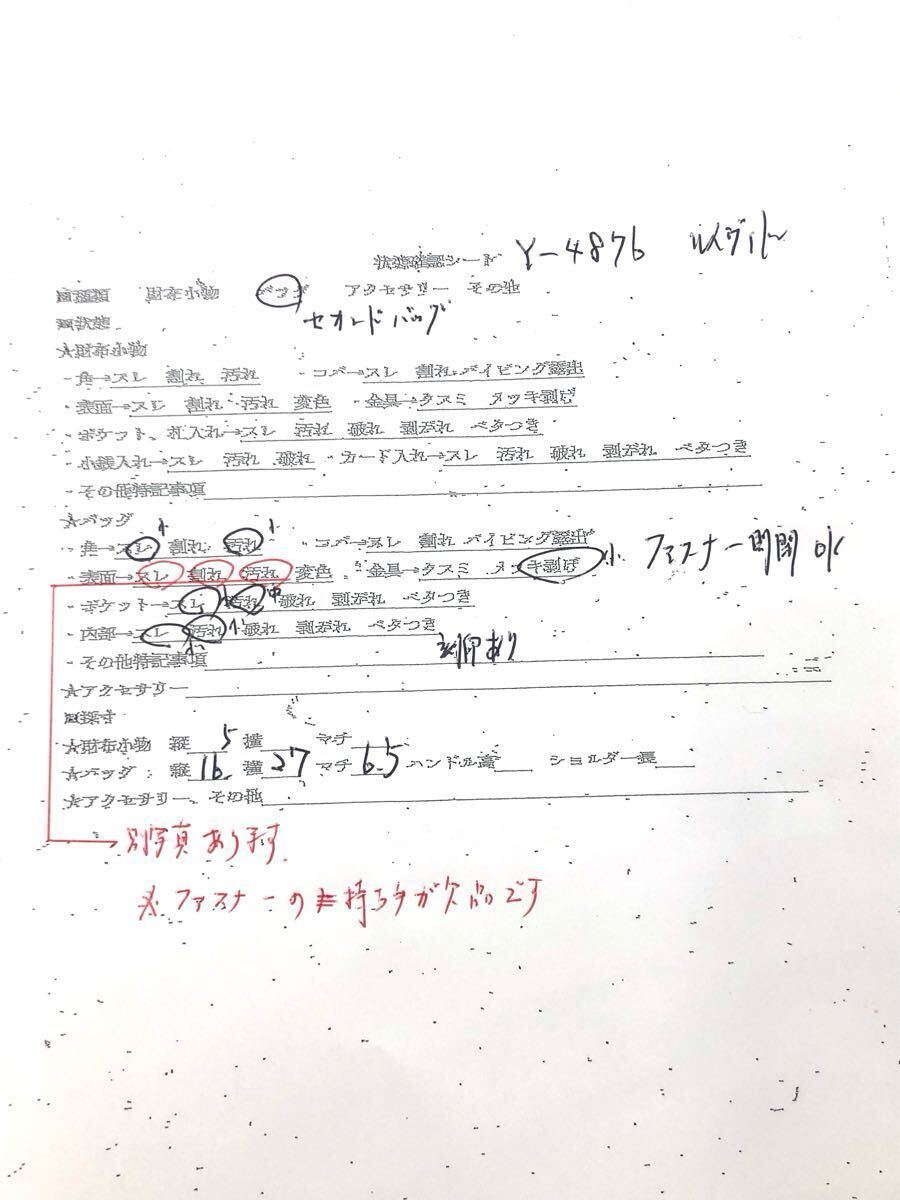 状態確認シート Y-4876 ルイヴィトン
■種類 財布小物 バッグ アクセサリー その他
■状態 セカンドバッグ
★財布小物
・角→スレ 割れ 汚れ ・コバ→スレ 割れ パイピング露出
・表面→スレ 割れ 汚れ 変色 ・金具→クスミ メッキ剥げ
・ポケット、札入れ→スレ 汚れ 破れ 剥がれ ベタつき
・小銭入れ→スレ 汚れ 破れ ・カード入れ→スレ 汚れ 破れ 剥がれ ベタつき
・その他特記事項
★バッグ 小 小
・角→スレ 割れ 汚れ ・コバ→スレ 割れ パイピング露出
・表面→スレ 割れ 汚れ 変色 ・金具→クスミ メッキ剥げ 小 ファスナー開閉OK
・ポケット→スレ 汚れ 中 破れ 剥がれ ベタつき
・内部→スレ 汚れ 小 破れ 剥がれ ベタつき
・その他特記事項 刻印あり
★アクセサリー
■採寸
★財布小物 縦 5 横 マチ
★バッグ 縦 16 横 27 マチ 6.5 ハンドル高 ショルダー長
★アクセサリー、その他
別写真あります
※ファスナーの持ち手が欠品です